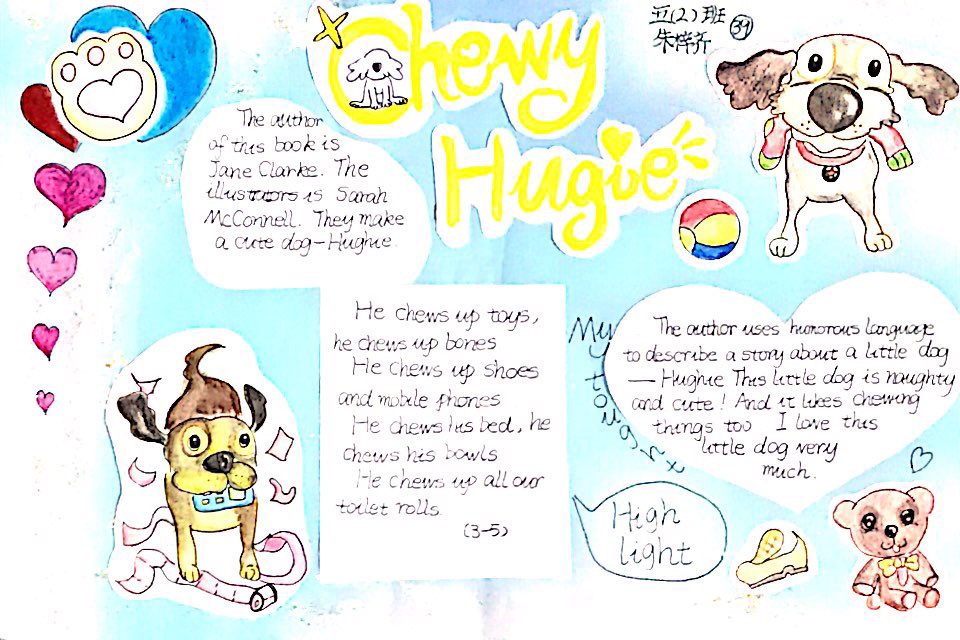 五(2)班
朱梓齐 31
Chewy
Hugie
The author
of this book is
Jane Clarke. The
illustrators is Sarah
McConnell. They make
a cute dog-Hughie.
He chews up toys,
he chews up bones
He chews up shoes
and mobile phones
He chews his bed, he
chews his bowls
He chews up all our
toilet rolls
(3-5)
My thought
The author uses humorous language
to describe a story about a little dog
— Hughie This little dog is naughty
and cute! And it likes chewing
things too I love this
little dog very
much.
High
light